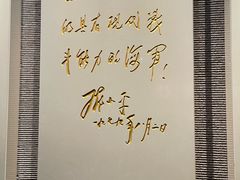 的具有现代战
斗能力的海军！
邓小平
一九七九年八月二日